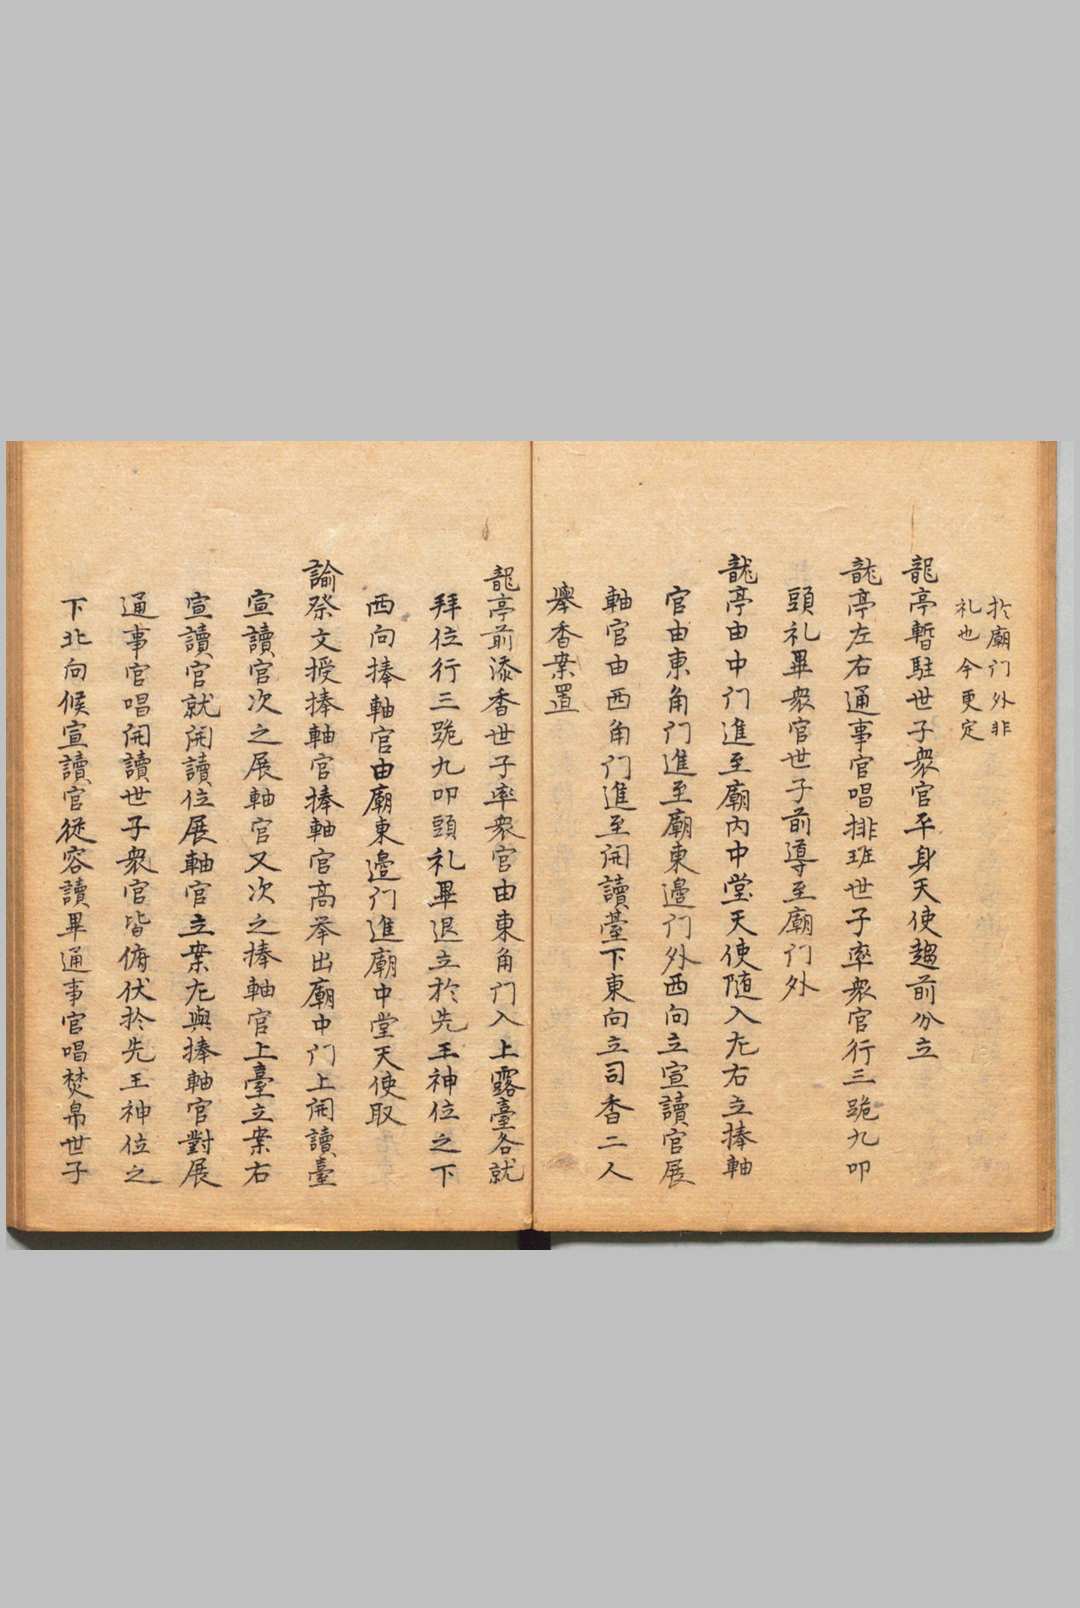 於廟门外非
礼也今更定
龍亭暫駐世子衆官平身天使趨前分立
龍亭左右通事官唱排班世子率衆官行三跪九叩
頭礼畢衆官世子前導至廟门外
龍亭由中门進至廟内中堂天使随入左右立捧軸
官由東角门進至廟東邊门外西向立宣讀官展
軸官由西角门進至開讀臺下東向立司香二人
舉香案置
龍亭前添香世子率衆官由東角门入上露臺各就
拜位行三跪九叩頭礼畢退立於先王神位之下
西向捧軸官由廟東邊门進廟中堂天使取
諭祭文授捧軸官捧軸官高举出廟中门上開讀臺
宣讀官次之展軸官又次之捧軸官上臺立案右
宣讀官就開讀位展軸官立案左與捧軸官對展
通事官唱開讀世子衆官皆俯伏於先王神位之
下北向候宣讀官從容讀畢通事官唱焚帛世子